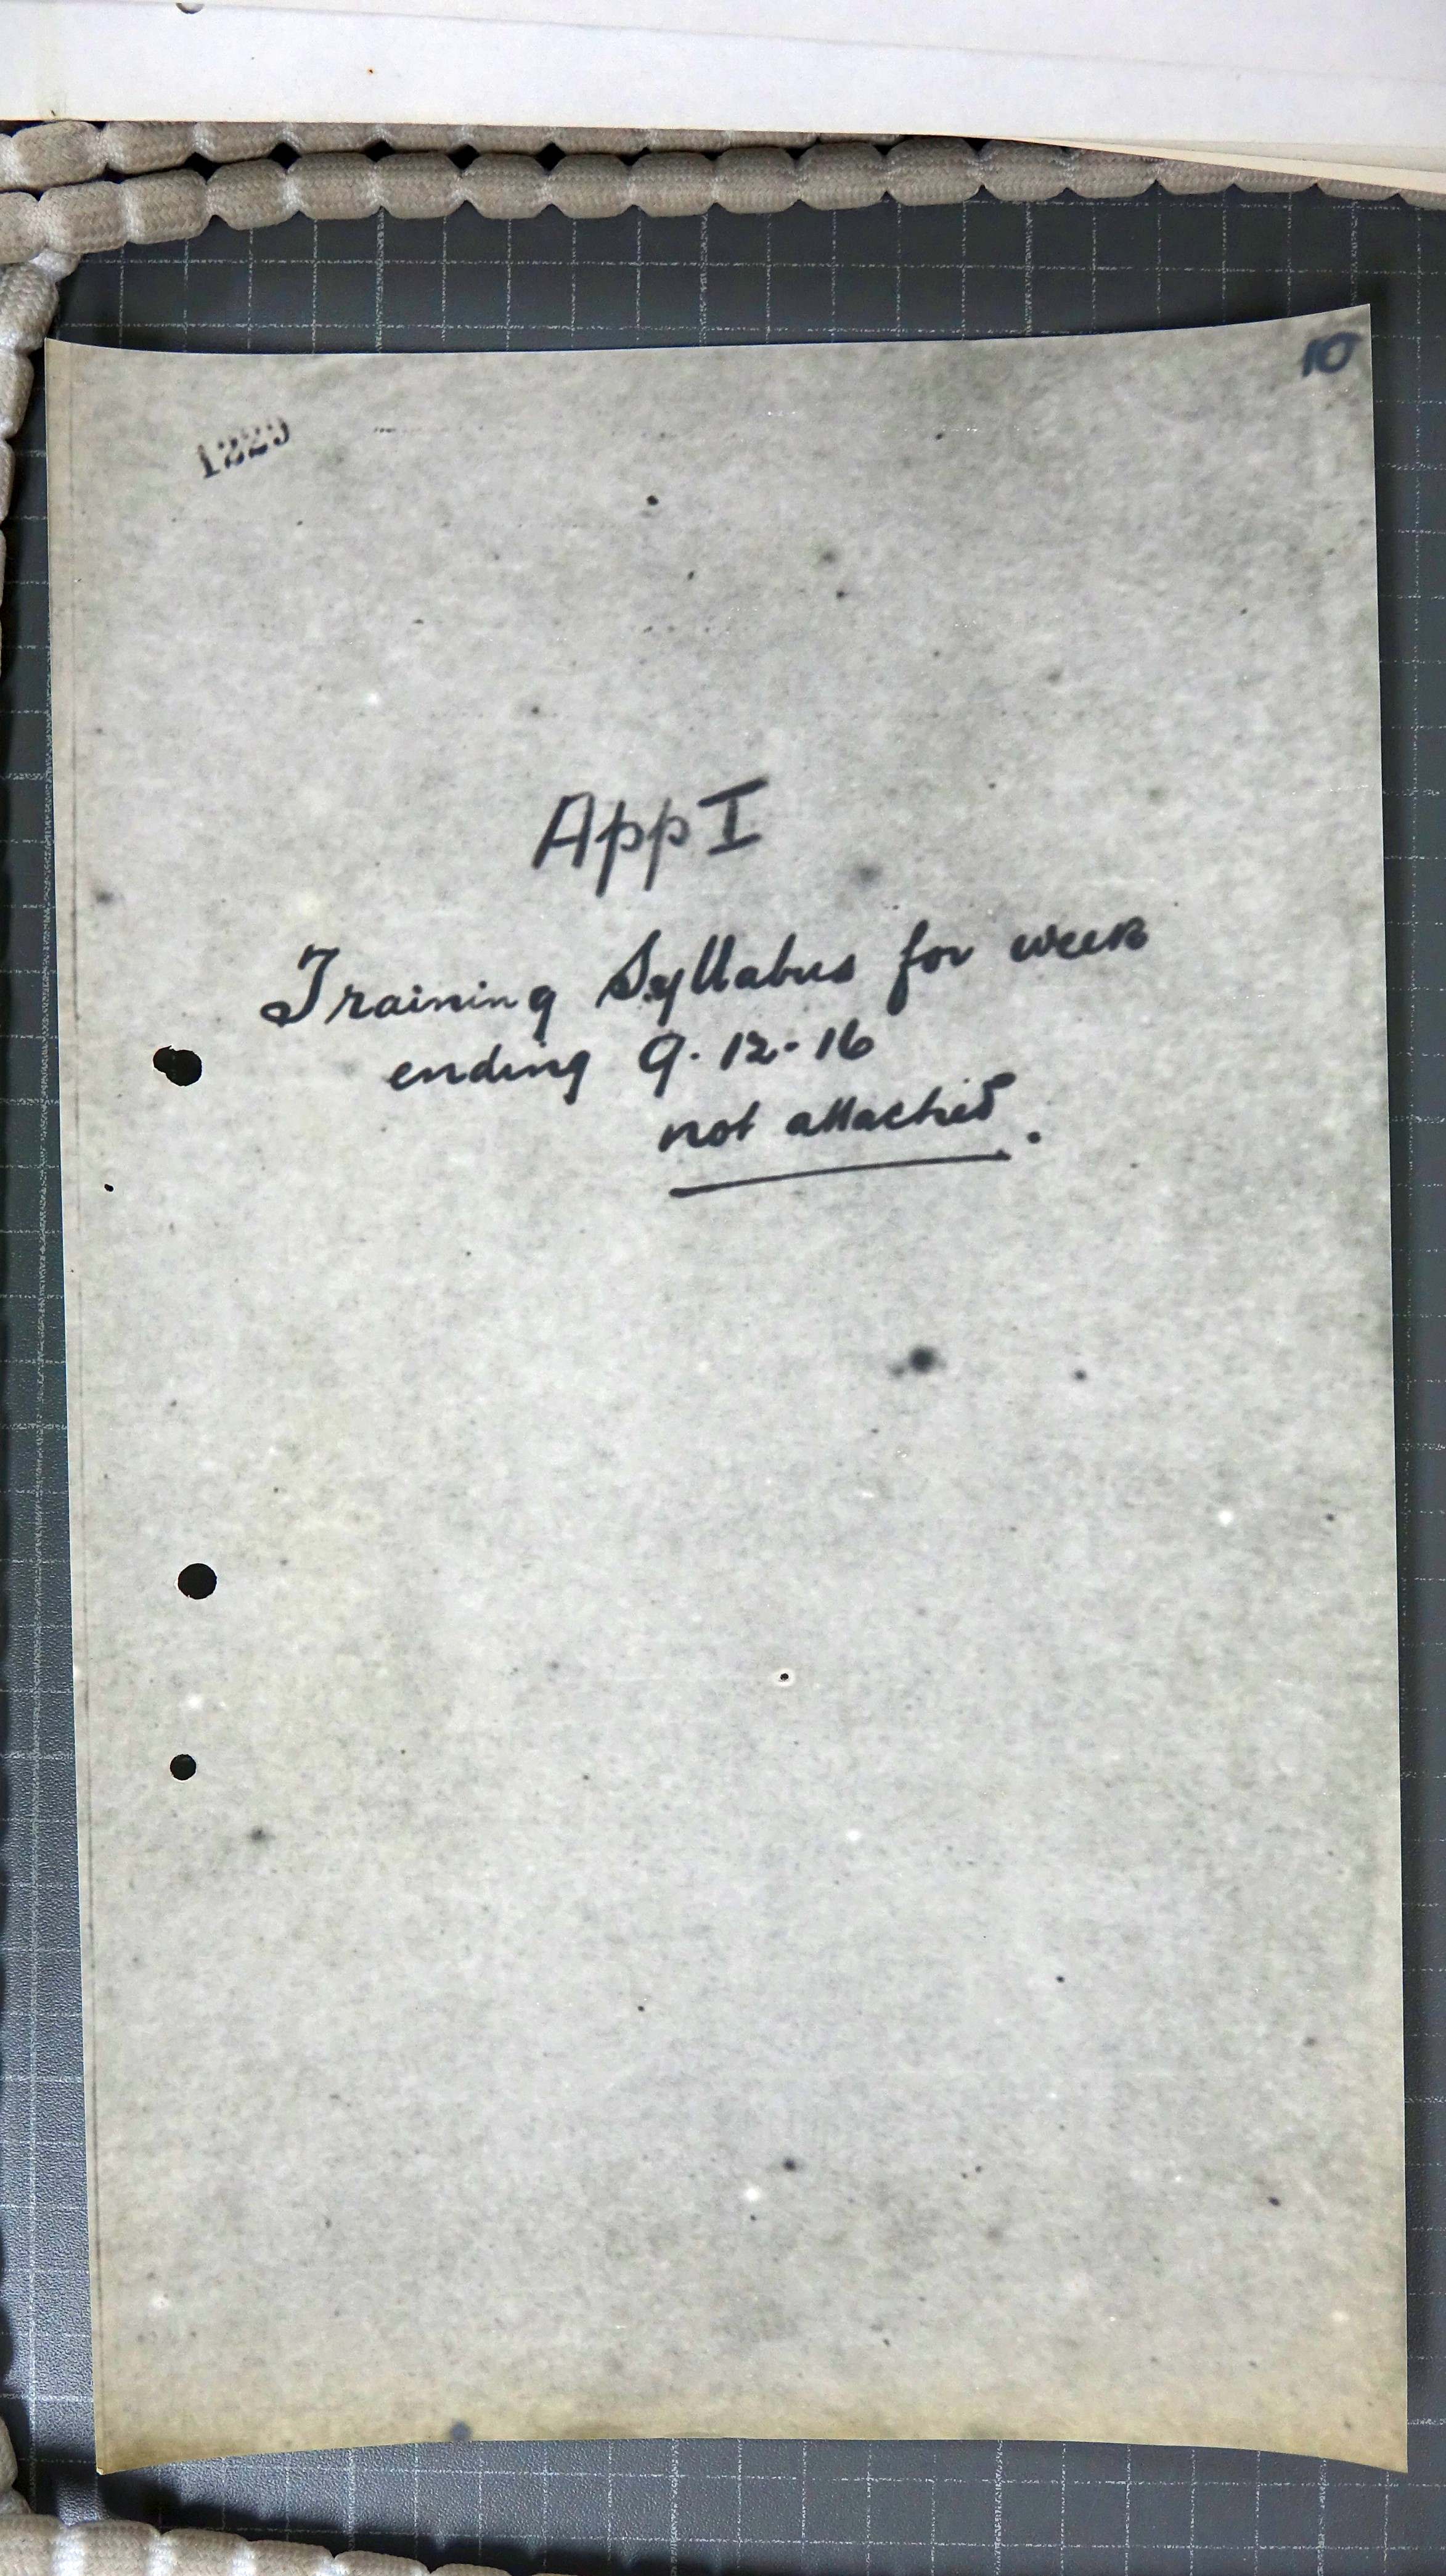 10
1229
App I
Training Syllabus for week
ending 9.12-16
not attached.